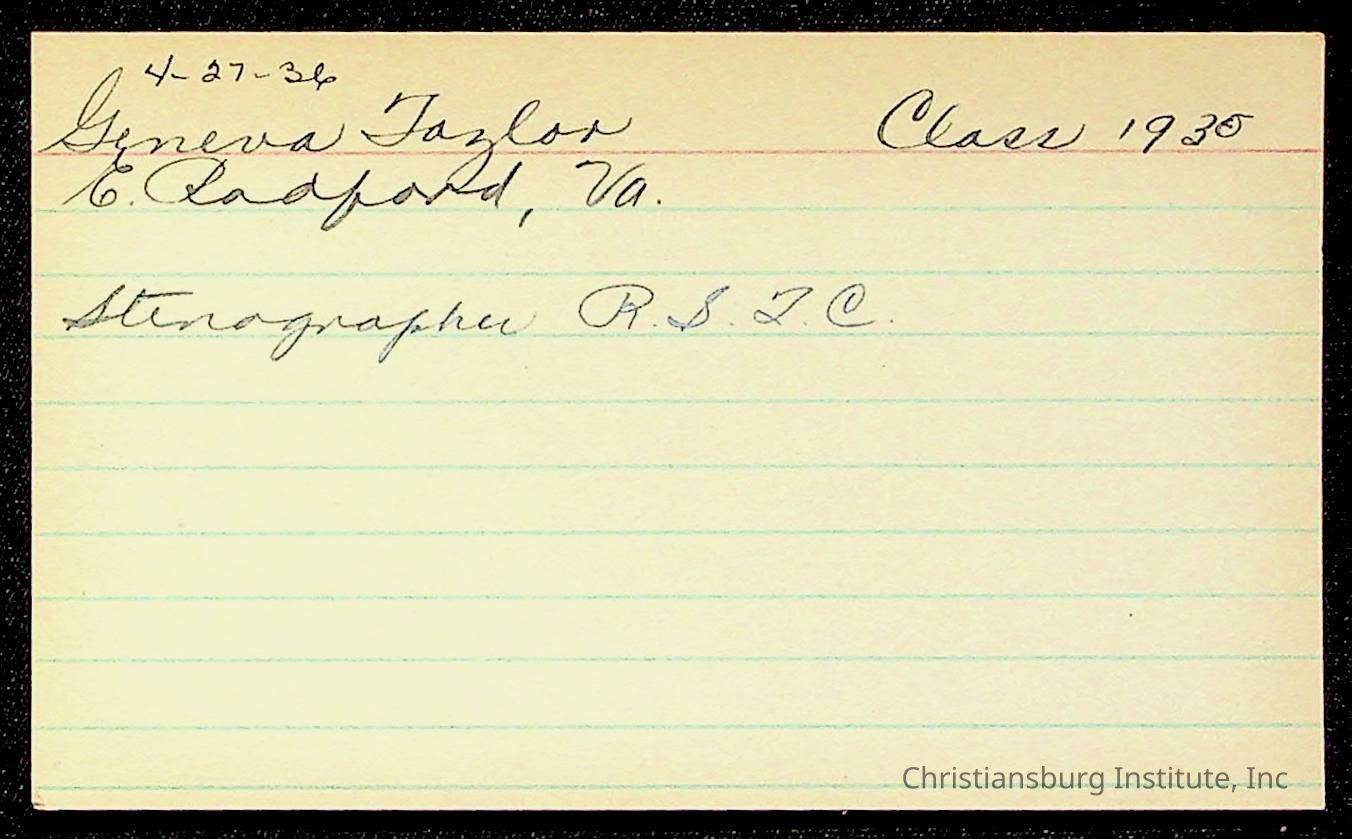 4-27-36
Geneva Taylor Class 1935
E. Radford, Va.
Stenographer R.S.T.C.
Christiansburg Institute, Inc